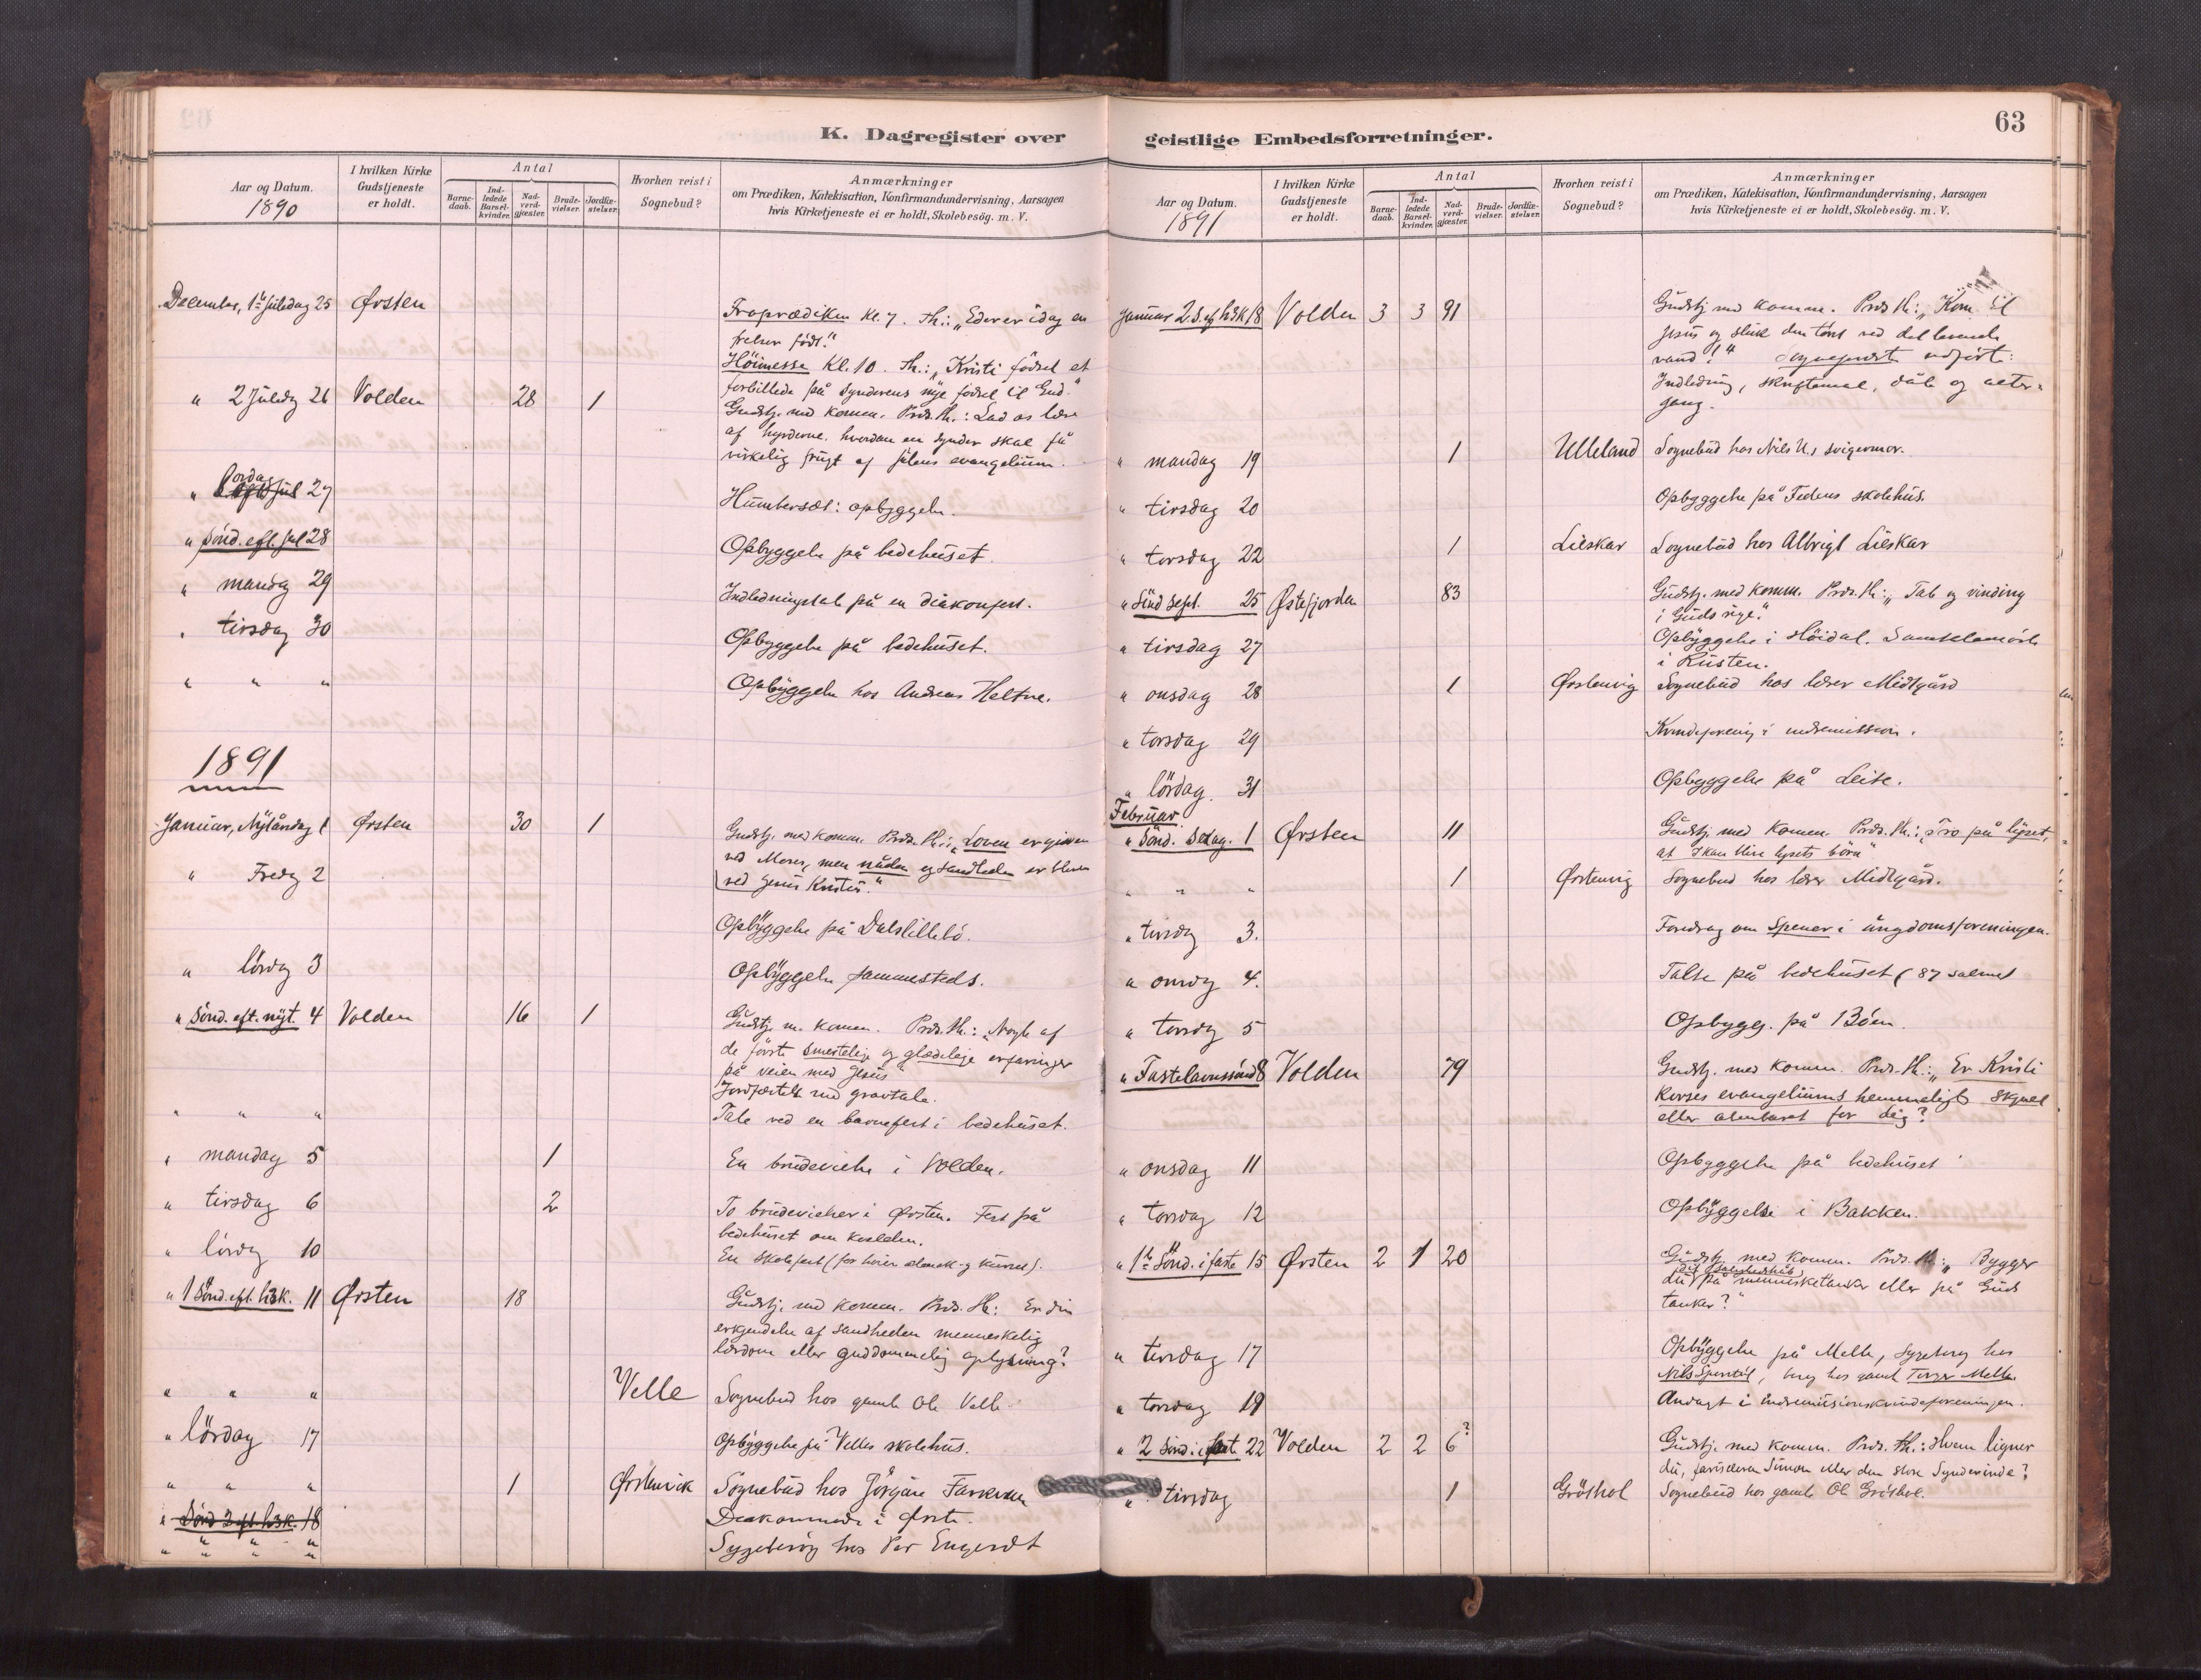 63
K. Dagregister over
geistlige Embedsforretninger.
Aar og Datum.
1890
I hvilken Kirke
Gudstjeneste
er holdt.
Antal
Barne-
daab.
Ind-
ledede
Barsel-
kvinder.
Nad-
verd-
gjæster.
Brude-
vielser.
Jordfæ-
stelser.
Hvorhen reist i
Sognebud?
Anmærkninger
om Prædiken, Katekisation, Konfirmandundervisning, Aarsagen
hvis Kirketjeneste ei er holdt, Skolebesög. m. V.
December, 1ste juledag 25 Ørsten
Froprædiken kl. 7. Th.: „Eder er idag en
frelser födt."
Höimesse kl. 10. Th.: „Kristi födsel et
forbillede på synderens nye födsel til Gud."
" 2 Juledg 26 Volden 28 1
Gudstj. med komm. Prds. Th.: Lad os lære
af hyrderne, hvordan en synder skal få
virkelig frugt af julens evangelium.
" lördag 27
opbyggelse.
" Sönd. eft. jul 28
Opbyggelse på bedehuset.
" mandag 29
Indledningstale på en
" tirsdag 30
Opbyggelse på bedehuset.
" " "
Opbyggelse hos Andreas Heltne.
1891
Januar, Nytårsdag 1 Ørsten 30 1
Gudstj. med komm. Prds. Th.: „Loven er given
ved Moses, men nåden og sandheden er bleven
ved Jesus Kristus."
" Fredg 2
Opbyggelse på
" lördg 3
Opbyggelse sammesteds.
" Sönd. eft. nyt. 4 Volden 16 1
Gudstj. m. komm. Prds. Th.: „Nogle af
de förste smertelige og glædelige erfaringer
på veien med Jesus"
Jordfæstelse med gravtale.
" " "
Tale ved en barnefest i bedehuset.
" mandag 5 1
En brudevielse i Volden.
" tirsdag 6 2
To brudevielser i Ørsten. Fest på
bedehuset om kvelden.
" lördg 10
En skolefest
" 1 Sönd. eft. h3k. 11 Ørsten 18
Gudstj. med komm. Prds. Th.: Er din
erkjendelse af sandheden menneskelig
lærdom eller guddommelig oplysning?
" " " Velle
Sognebud hos gamle Ole Velle.
" lördag 17
Opbyggelse på Velles skolehus.
" " " 1 Ørstenvik
Sognebud hos Jörgine
" Sönd 2 eft. h3k. 18
i Ørsten.
" " " "
Sygebesög hos Per Engeset
Aar og Datum.
1891
I hvilken Kirke
Gudstjeneste
er holdt.
Antal
Barne-
daab.
Ind-
ledede
Barsel-
kvinder.
Nad-
verd-
gjæster.
Brude-
vielser.
Jordfæ-
stelser.
Hvorhen reist i
Sognebud?
Anmærkninger
om Prædiken, Katekisation, Konfirmandundervisning, Aarsagen
hvis Kirketjeneste ei er holdt, Skolebesög. m. V.
Januar 2. S. ef h3k 18 Volden 3 3 91
Gudstj. med komm. Prds. Th.: „Kom til
Jesus og sluk din törst ved det levende
vand!" Sognepresten udförte:
Indledning, skriftemaal, dåb og alter-
gang.
" mandag 19 1 Ulleland
Sognebud hos Nils U.s svigermor.
" tirsdag 20
Opbyggelse på skolehus.
" torsdag 22 1 Lieskar
Sognebud hos Albrigt Lieskar
" Sönd Sept. 25 Østefjorden 83
Gudstj. med komm. Prds. Th.: „Tab og vinding
i Guds rige."
" tirsdag 27
Opbyggelse i Höidal.
i Kusten.
" onsdag 28 1 Ørstenvig
Sognebud hos lærer Midtgård
" torsdag 29
Kvindeforening i indremission.
" lördag 31
Opbyggelse på Leite.
Februar
" Sönd. Sexag. 1 Ørsten 11
Gudstj. med komm. Prds. Th.: „Tro på lyset,
at I kan blive lysets börn"
" " " 1 Ørstenvig
Sognebud hos lærer Midtgård.
" tirsdg 3.
Foredrag om Spener i ungdomsforeningen.
" onsdg 4.
Talte på bedehuset (87 salme)
" torsdg 5
Opbygg. på Böen.
" Fastelavnssönd 8 Volden 79
Gudstj. med komm. Prds. Th.: „Er Kristi
korses evangeliums hemmelighed skjult
eller åbenbaret for dig?
" onsdag 11
Opbyggelse på bedehuset
" torsdag 12
Opbyggelse i Bakken.
" 1ste Sönd. i faste 15 Ørsten 2 1 20
Gudstj. med komm. Prds. Th.: „Bygger
du dit salighedshåb på mennesketanker eller på Guds
tanker?"
" tirsdag 17
Opbyggelse på Melle, sygebesög hos
Nils besög hos gamle Melle.
" torsdag 19
Andagt i indremissionskvindeforeningen.
" 2 Sönd. i fast. 22 Volden 2 2 6?
Gudstj. med komm. Prds. Th.: Hvem ligner
du, farisæeren Simon eller den store Synderinde?
" tirsdag 1 Gröthol
Sognebud hos gamle Ole Gröthol.